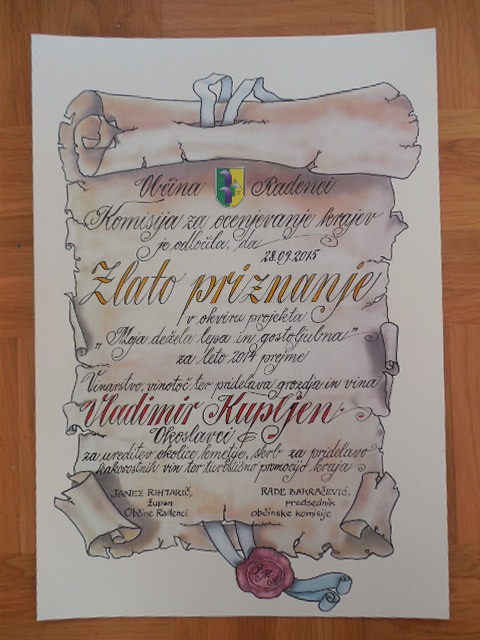 Občina Radenci
Komisija za ocenjevanje krajev
je odločila, da
28.09.2015
Zlato priznanje
v okviru projekta
„Moja dežela lepa in gostoljubna"
za leto 2014 prejme
Vinarstvo, vinotoč ter pridelava grozdja in vina
Vladimir Kupljen
Okoslavci
za ureditev okolice kmetije, skrb za pridelavo
kakovostnih vin ter turistično promocijo kraja
JANEZ RIHTARIČ,
župan
Občine Radenci
RADE BAKRAČEVIĆ,
predsednik
občinske komisije